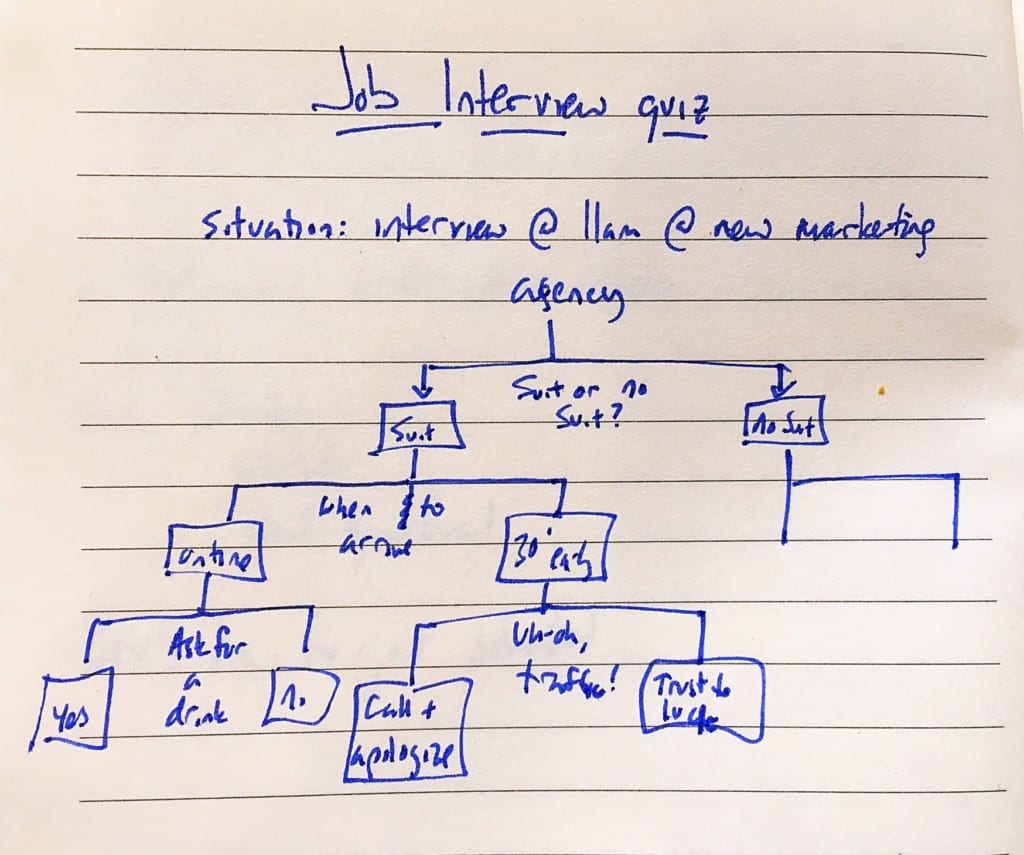 Job Interview quiz
Situation: interview @ 11am @ new marketing
agency
Suit or no
Suit?
Suit
no Suit
when to
arrive
ontime
30' early
Ask for
a
drink
Yes
no
Uh-oh,
traffic!
Call +
apologize
Trust to
luck